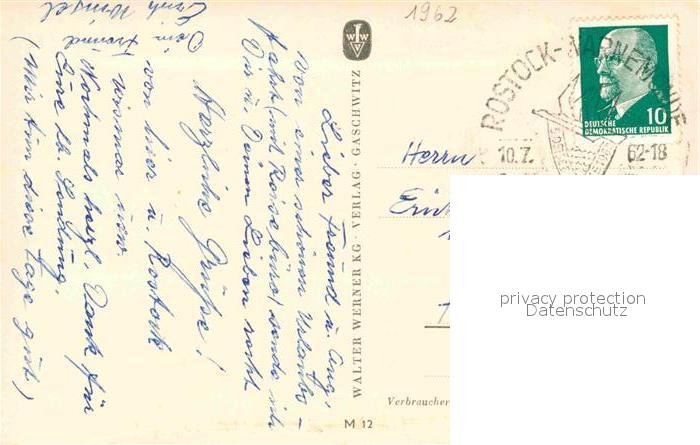 1962
ROSTOCK-WARNEMÜNDE
10.7.
62-18
10
DEUTSCHE
DEMOKRATISCHE REPUBLIK
Herrn
Erich
WALTER WERNER KG · VERLAG · GASCHWITZ
Lieber Freund u.
Von einer schönen Urlaubs-
fahrt (mit Reisebüro) sende ich
Dir u. Deinen Lieben recht
Herzliche Grüße!
von hier u. Rostock
Wismar usw.
Nochmals herzl. Dank für
Eure lb. Sendung.
(Mir tun diese Tage gut.)
Dein Freund
Verbraucher
M 12
privacy protection
Datenschutz